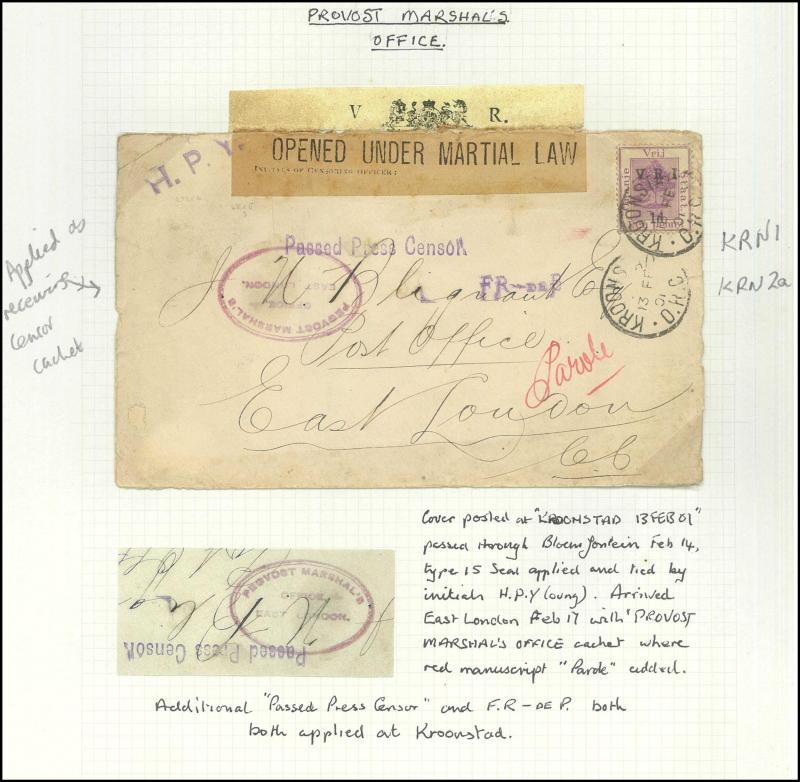 PROVOST MARSHAL'S
OFFICE.
V R.
OPENED UNDER MARTIAL LAW
INITIALS OF CENSORING OFFICER:
H. P. Y.
Vrij
V. R. I.
1d
KROONSTAD
O.R.C.
KROONS
13 FE
01
O.R.C.
KRN1
KRN2a
Passed Press Censor
FR-DE P
PROVOST MARSHAL'S
OFFICE
EAST LONDON.
J. N. Blignaut Esq
Post Office
East London
C C
Parole
Applied as
receiving
censor
cachet
Cover posted at "KROONSTAD 13FEB01"
passed through Bloemfontein Feb 14,
type 15 seal applied and tied by
initials H.P.Y (oung). Arrived
East London Feb 17 with 'PROVOST
MARSHAL'S OFFICE cachet where
red manuscript "Parole" added.
PROVOST MARSHAL'S
OFFICE
EAST LONDON.
Passed Press Censor
Additional "Passed Press Censor" and F.R-DE P. both
both applied at Kroonstad.